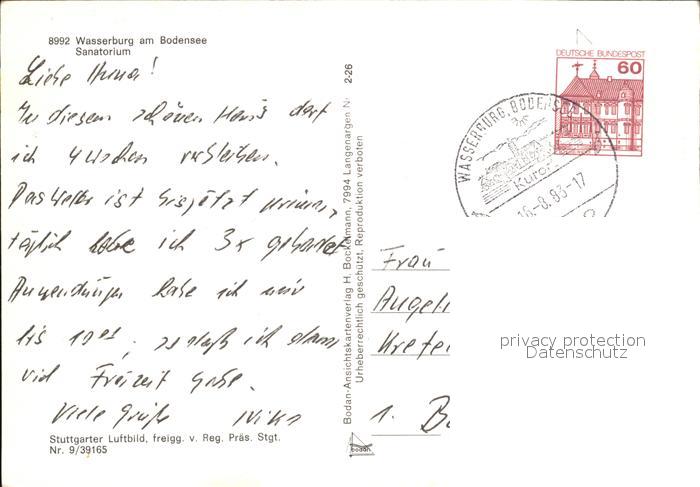 8992 Wasserburg am Bodensee
Sanatorium
Liebe !
In diesem schönen Haus darf
ich 4 Wochen verbleiben.
Das Wetter ist bis jetzt prima,
täglich habe ich 3x gebadet
Anwendungen habe ich nur
bis 10, so daß ich dann
viel Freizeit habe.
Viele Grüße
Stuttgarter Luftbild, freigg. v. Reg. Präs. Stgt.
Nr. 9/39165
Bodan-Ansichtskartenverlag H. Bockelmann, 7994 Langenargen Nr. 2-26
Urheberrechtlich geschützt, Reproduktion verboten
bodan
DEUTSCHE BUNDESPOST
60
WASSERBURG BODENSEE
Kurort
16.-8.83-17
Frau
Angeli
Kreter
1. B
privacy protection
Datenschutz